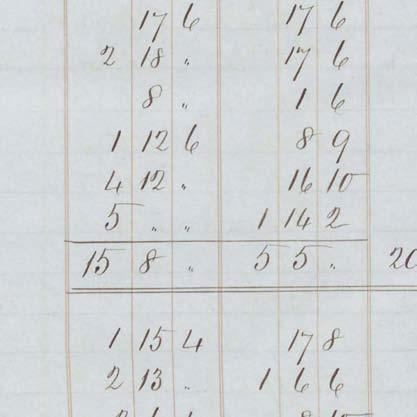 17 6 17 6
2 18 " 17 6
8 " 1 6
1 12 6 8 9
4 12 " 16 10
5 " " 1 14 2
15 8 " 5 5 " 20
1 15 4 17 8
2 13 " 1 6 6